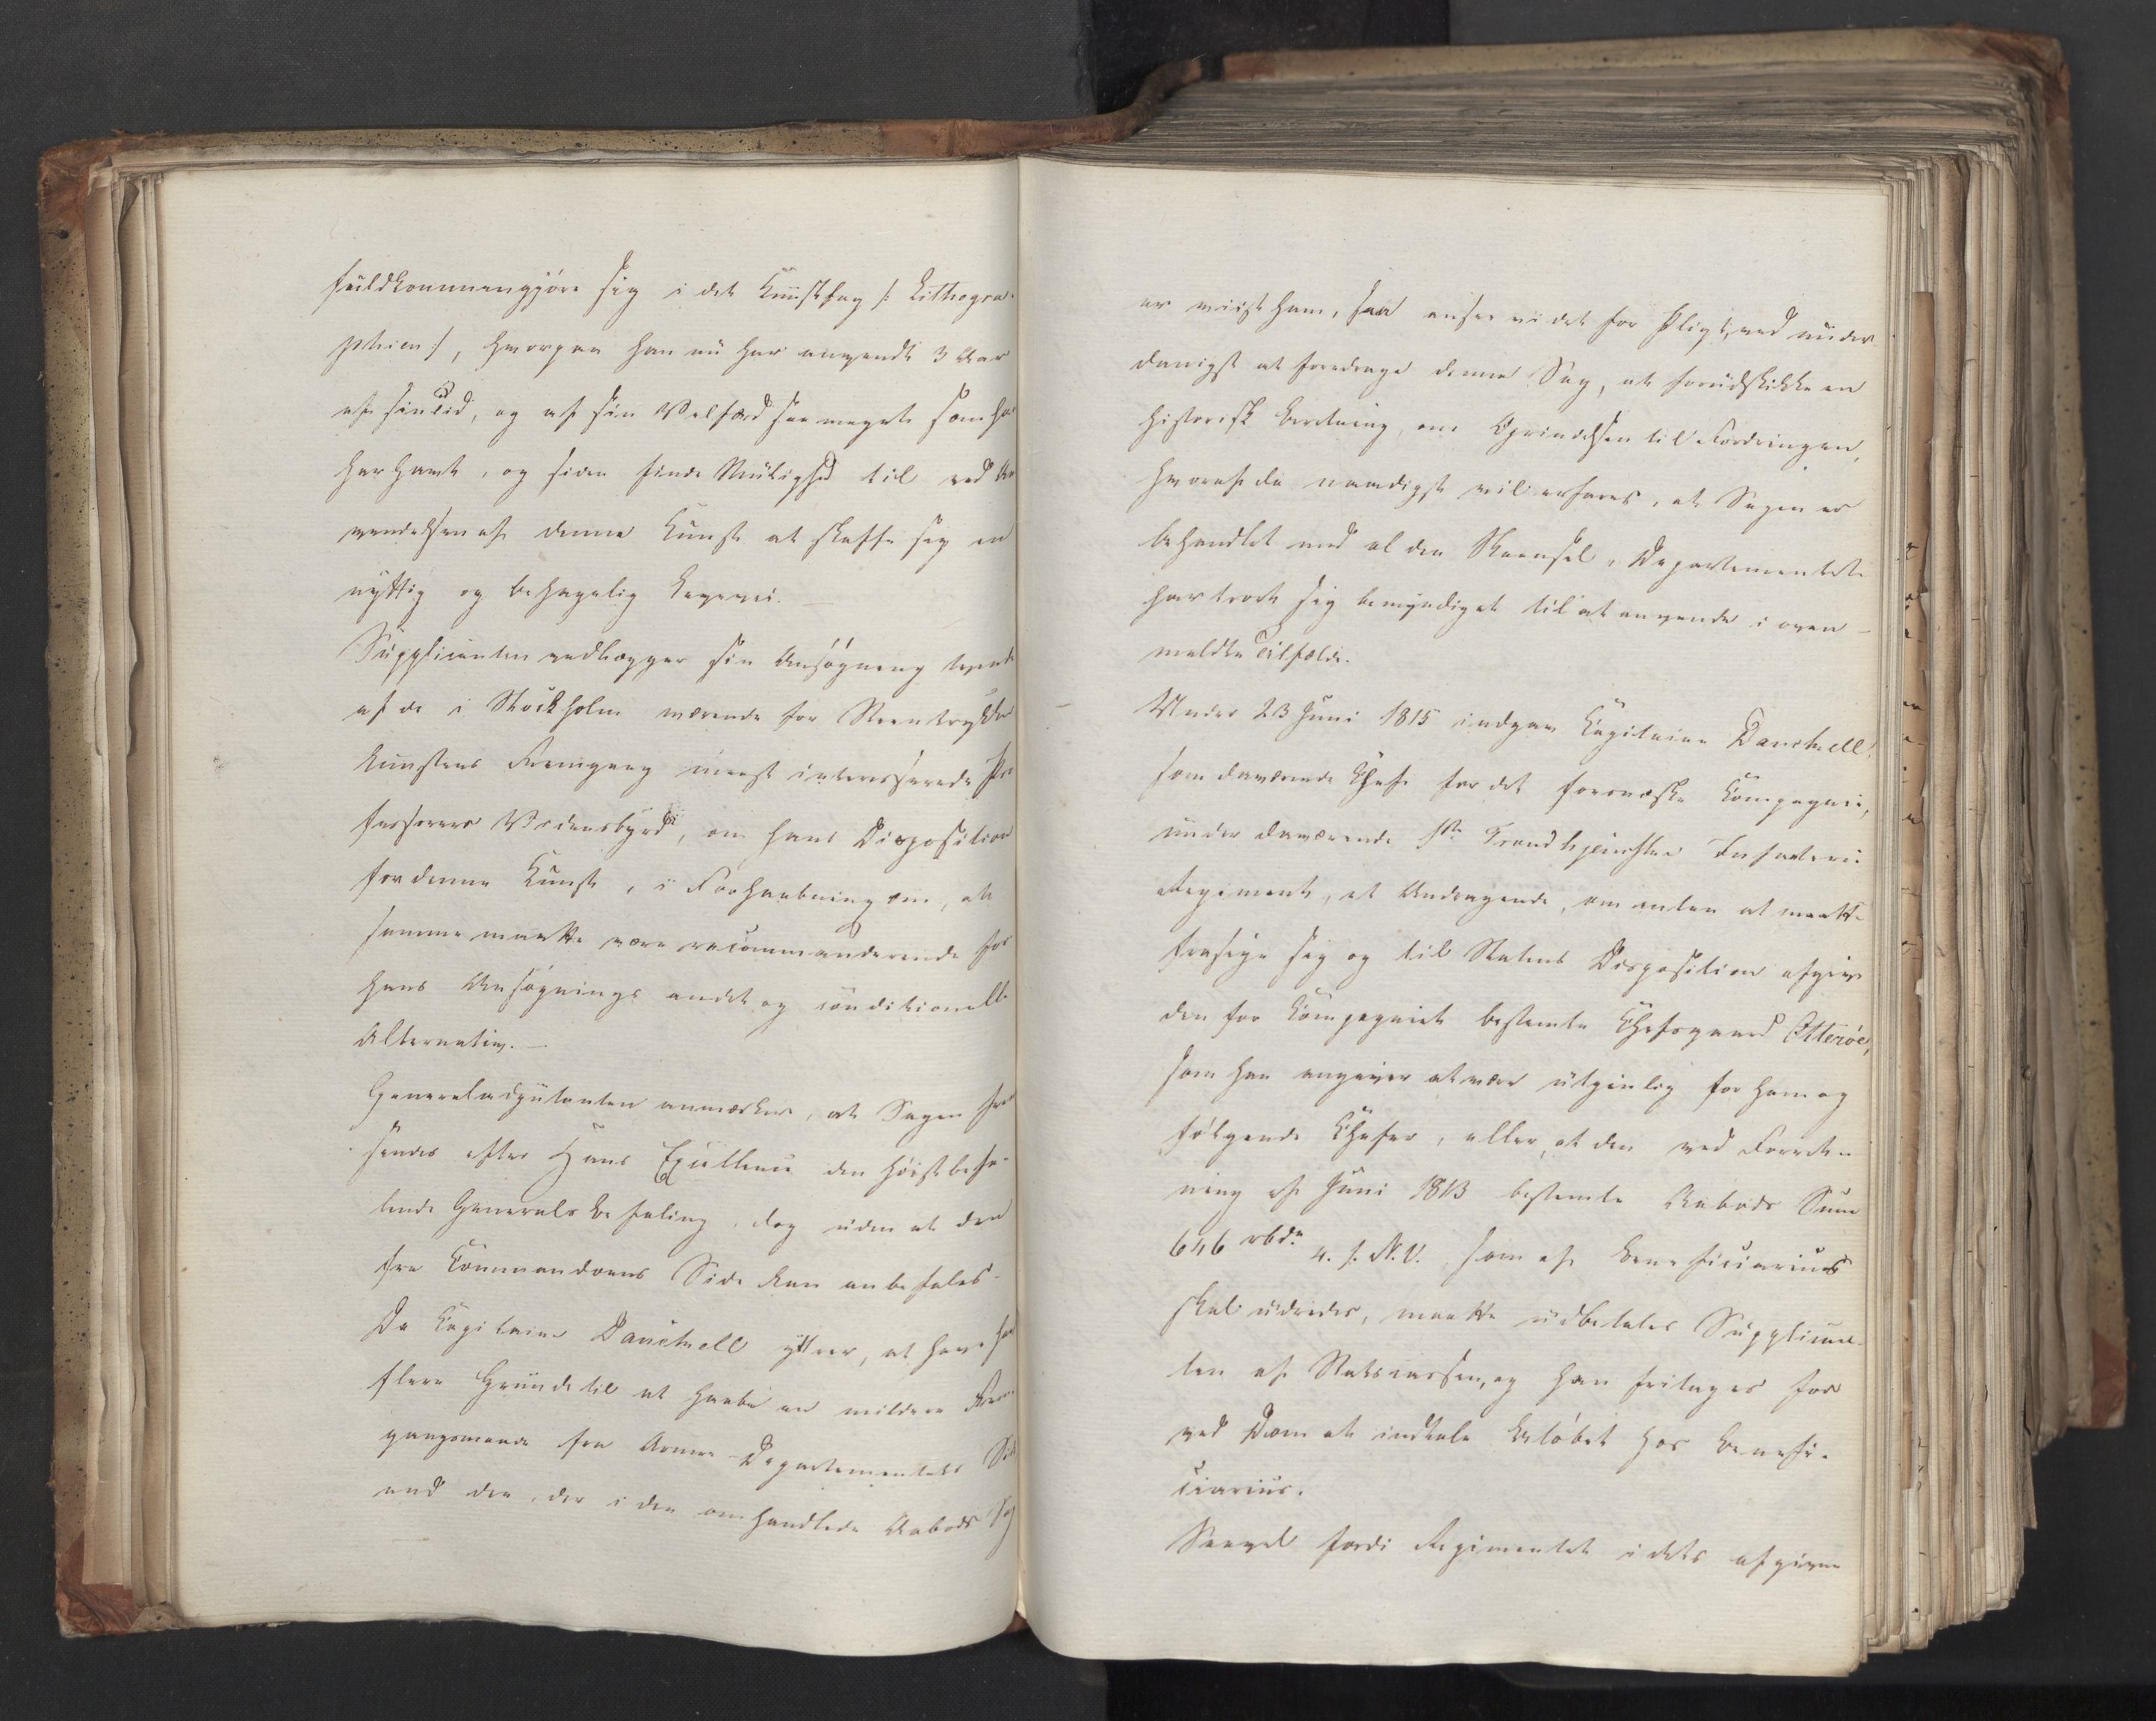 fuldkommengjøre sig i det Kunstfag /: Lithogra-
phien :/, hvorpaa han nu har anvendt 3 Aar
af sin Tid, og af sin Velfærd saa meget som han
har havt, og siden finde Mulighed til ved An
vendelsen af denne Kunst at skaffe sig en
nyttig og behagelig Levevei. —
Supplicanten vedlægger sin Ansøgning
af de i Stockholm værende for Steentrykker
kunstens Fremgang meest interesserede Pro
fessorers Vidensbyrd, om hans Disposition
for denne Kunst, i Forhaabning om, at
samme maatte være recommanderende for
hans Ansøgnings andet og conditionelle
Alternativ. —
Generaladjutanten anmærker, at Sagen frem
sendes efter Hans Excellence den høistbefa-
lende Generals Befaling, dog uden at den
fra Commandoens Side kan anbefales.
Da Capitaine Danchell yttrer, at have
flere Grunde til at haabe en mildere Frem
gangsmaade fra Armee-Departementets Side
end den, der i den omhandlede Aabods Sag
er viist ham, saa ansee vi det for Pligt, ved under
danigst at foredrage denne Sag, at forudskikke en
historisk Beretning, om Oprindelsen til Fordringen,
hvoraf da naadigst vil erfares, at Sagen er
behandlet med al den Skaansel, Departementet
har troet sig bemyndiget til at anvende i oven-
meldte Tilfælde.
Under 23 Juni 1815 indgav Capitaine Danchell,
som daværende Chef for det fosnæske Compagnie,
under daværende 1ste Trondhjemske Infanterie
Regiment, et Andragende, om enten at maatte
frasige sig og til Statens Disposition afgive
den for Compagniet bestemte Chefsgaard Otterøe,
som han angiver at være utjenlig for ham og
følgende Chefer, eller, at den ved Forret-
ning af Juni 1813 bestemte Aabods Sum
646 rbdr 4. s. N.V. som af Beneficiarius
skal udredes, maatte udbetales Supplican-
ten af Statscassen, og han fritages for
ved Dom at indtale Beløbet hos Benefi-
ciarius.
Saavel fordi Regimentet i dets afgivne